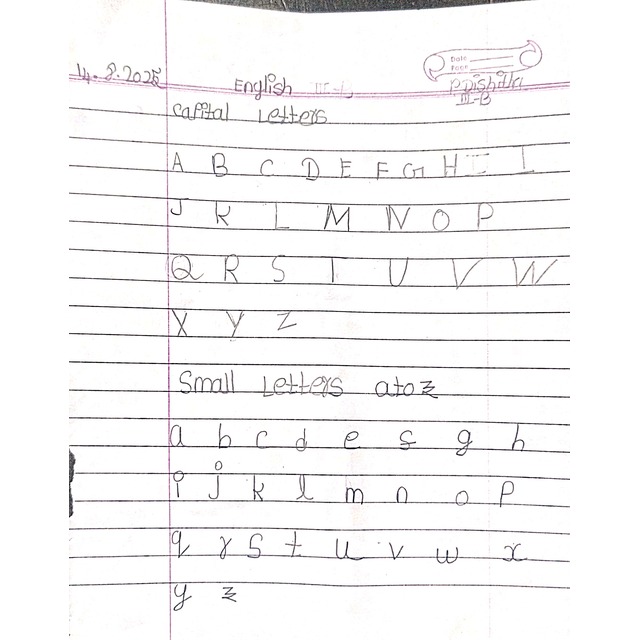 Date
4.8.2025
English III-B
III-B
Capital Letters
A B C D E F G H I
J K L M N O P
Q R S T U V W
X Y Z
Small Letters a to z
a b c d e f g h
i j k l m n o p
q r s t u v w x
y z